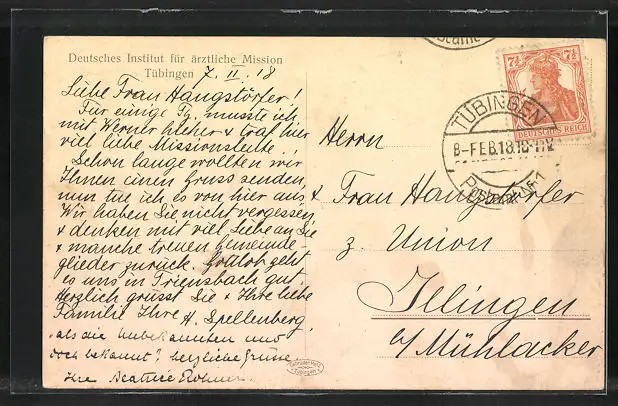 Deutsches Institut für ärztliche Mission
Tübingen 7. II. 18
Liebe Frau Hangstörfer!
Für einige Tg. musste ich
mit Werner hieher & traf hier
viel liebe Missionsleute!
Schon lange wollten wir
Ihnen einen Gruss senden,
nun tue ich es von hier aus.
Wir haben Sie nicht vergessen,
& denken mit viel Liebe an Sie
& manche treuen Gemeinde-
glieder zurück. Gottlob geht
es uns in Triensbach gut.
Herzlich grüsst Sie & Ihre liebe
Familie Ihre H. Spellenberg.
als die Unbekannten und
doch bekannt? herzliche Grüsse
Ihre Beatrice Rohner
7½ 7½
DEUTSCHES REICH
TÜBINGEN
8-FEB.18.10-11V.
Postamt No 1
Herrn
& Frau Hangstörfer
z. Union
Illingen
b/ Mühlacker